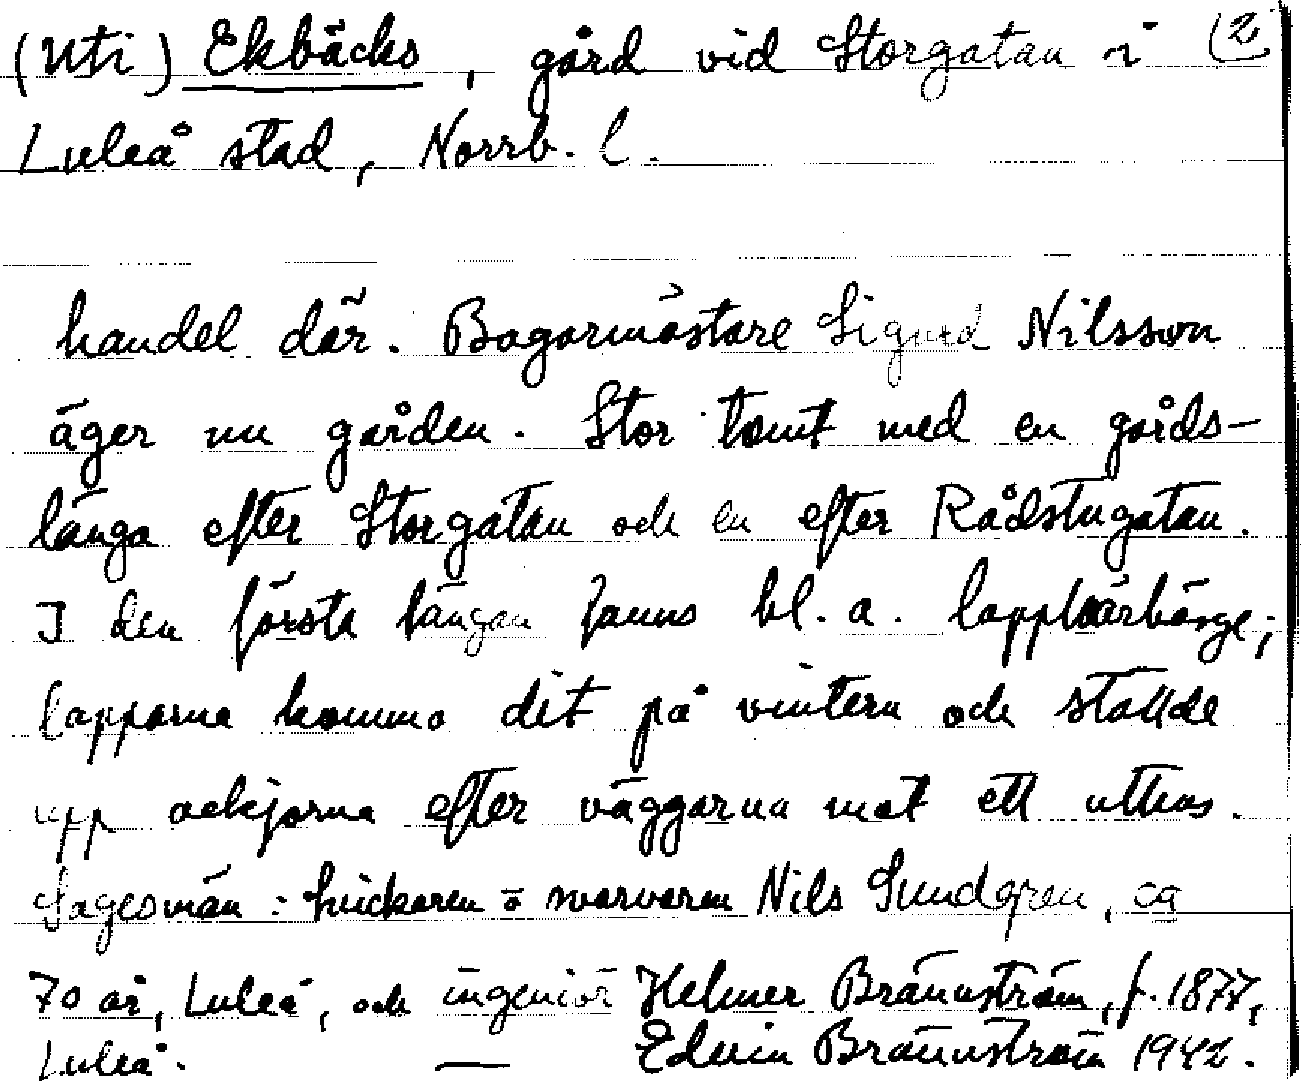 (Uti) Ekbäcks, gård vid Storgatan i (2
Luleå stad, Norrb. l.
handel där. Bagarmästare Sigurd Nilsson
äger nu gården. Stor tomt med en gårds-
länga efter Storgatan och en efter Rådstugatan.
I den första längan fanns bl. a. lapphärbärge;
lapparna kommo dit på vintern och ställde
upp ackjorna efter väggarna mot ett uthus.
Sagesmän: snickaren o svarvaren Nils Sundgren, ca
70 år, Luleå, och ingenjör Helmer Brännström, f. 1877,
Luleå. — Edvin Brännström 1942.